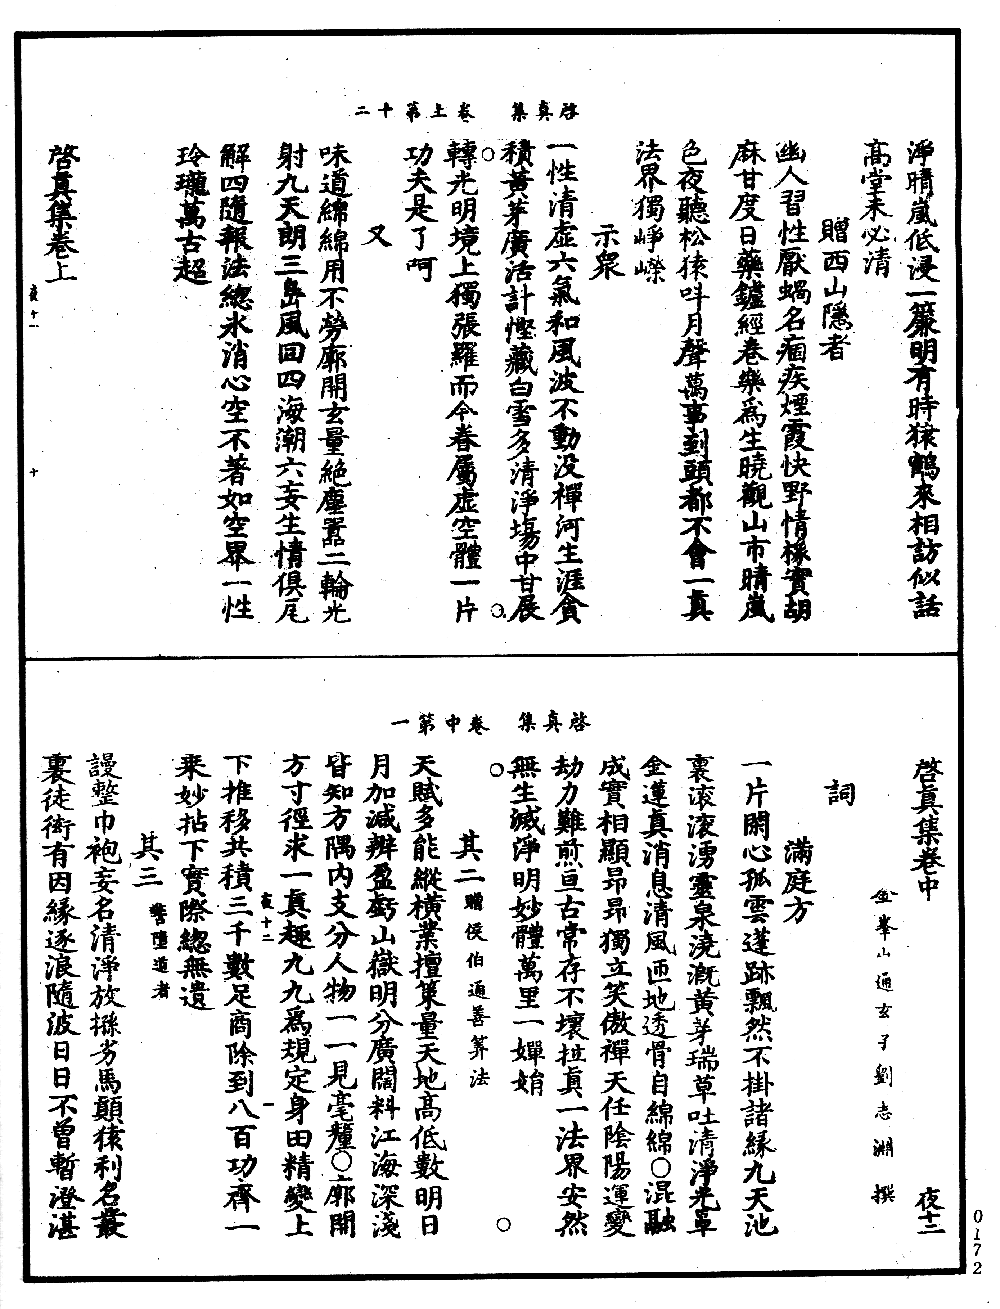 啓真集　卷上第十二
淨晴嵐低浸一簾明有時猿鶴來相訪似話
高堂未必清
贈西山隱者
幽人習性厭蝸名痼疾煙霞快野情橡實胡
麻甘度日藥鑪經卷樂爲生曉觀山市晴嵐
色夜聽松猿叫月聲萬事到頭都不會一真
法界獨崢嶸
示衆
一性清虛六氣和風波不動没禪河生涯貪
積黃芽廣活計慳藏白雪多清淨場中甘展
轉光明境上獨張羅而今春屬虛空體一片
功夫是了呵
又
味道綿綿用不勞廓開玄量絶塵嚚二輪光
射九天朗三島風回四海潮六妄生情俱瓦
解四隨報法總氷消心空不著如空界一性
玲瓏萬古超
啓真集卷上
夜十一
十
啓真集　卷中第一
啓真集卷中
夜十二
金峯山通玄子劉志淵　撰
詞
滿庭方
一片閑心孤雲蓬跡飄然不掛諸緣九天池
裏滚滚湧靈泉澆溉黃芽瑞草吐清淨光罩
金蓮真消息清風匝地透骨自綿綿○混融
成實相顯昂昂獨立笑傲禪天任陰陽運變
劫力難煎亘古常存不壞拉真一法界安然
無生滅淨明妙體萬里一嬋娟
其二贈侯伯通善筭法
天賦多能縱橫業擅策量天地高低數明日
月加減辨盈虧山嶽明分廣闊料江海深淺
皆知方隅内支分人物一一見毫釐○廓開
方寸徑求一真趣九九爲規定身田精變上
夜十二
一
下推移共積三千數足商除到八百功齊一
乘妙拈下實際總無遺
其三警墮道者
謾整巾袍妄名清淨放搽劣馬顛猿利名叢
裏徒衒有因緣逐浪隨波日日不曾暫澄湛
0172